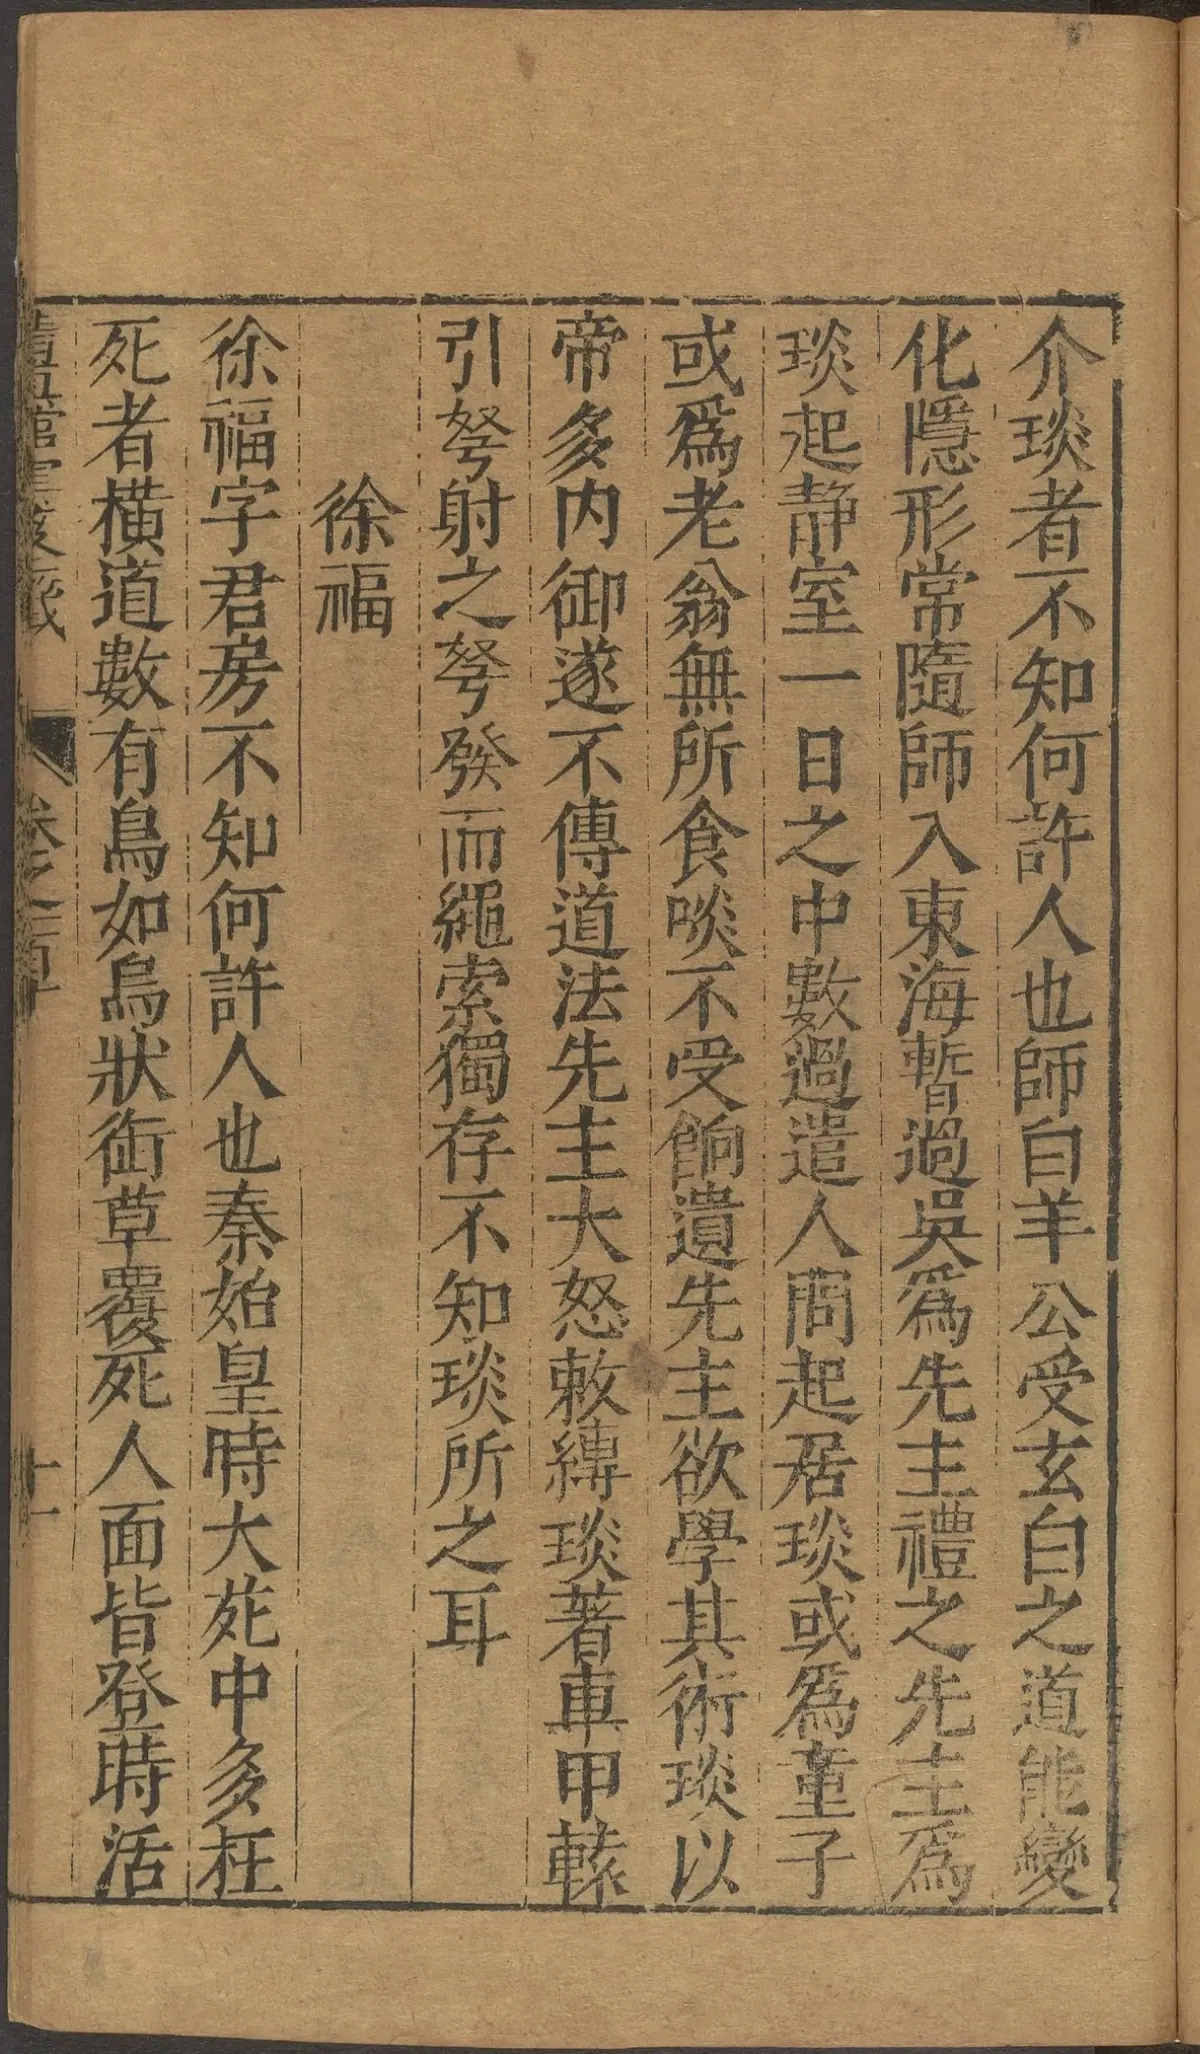 介琰者不知何許人也師白羊公受玄白之道能變
化隱形常隨師入東海暫過吳爲先主禮之先主爲
琰起静室一日之中數過遣人問起居琰或爲童子
或爲老翁無所食啖不受餉遺先主欲學其術琰以
帝多内御遂不傳道法先主大怒敕縛琰著車甲轅
引弩射之弩發而繩索獨存不知琰所之耳
徐福
徐福字君房不知何許人也秦始皇時大苑中多枉
死者橫道數有鳥如烏狀銜草覆死人面皆登時活
卷之
十一